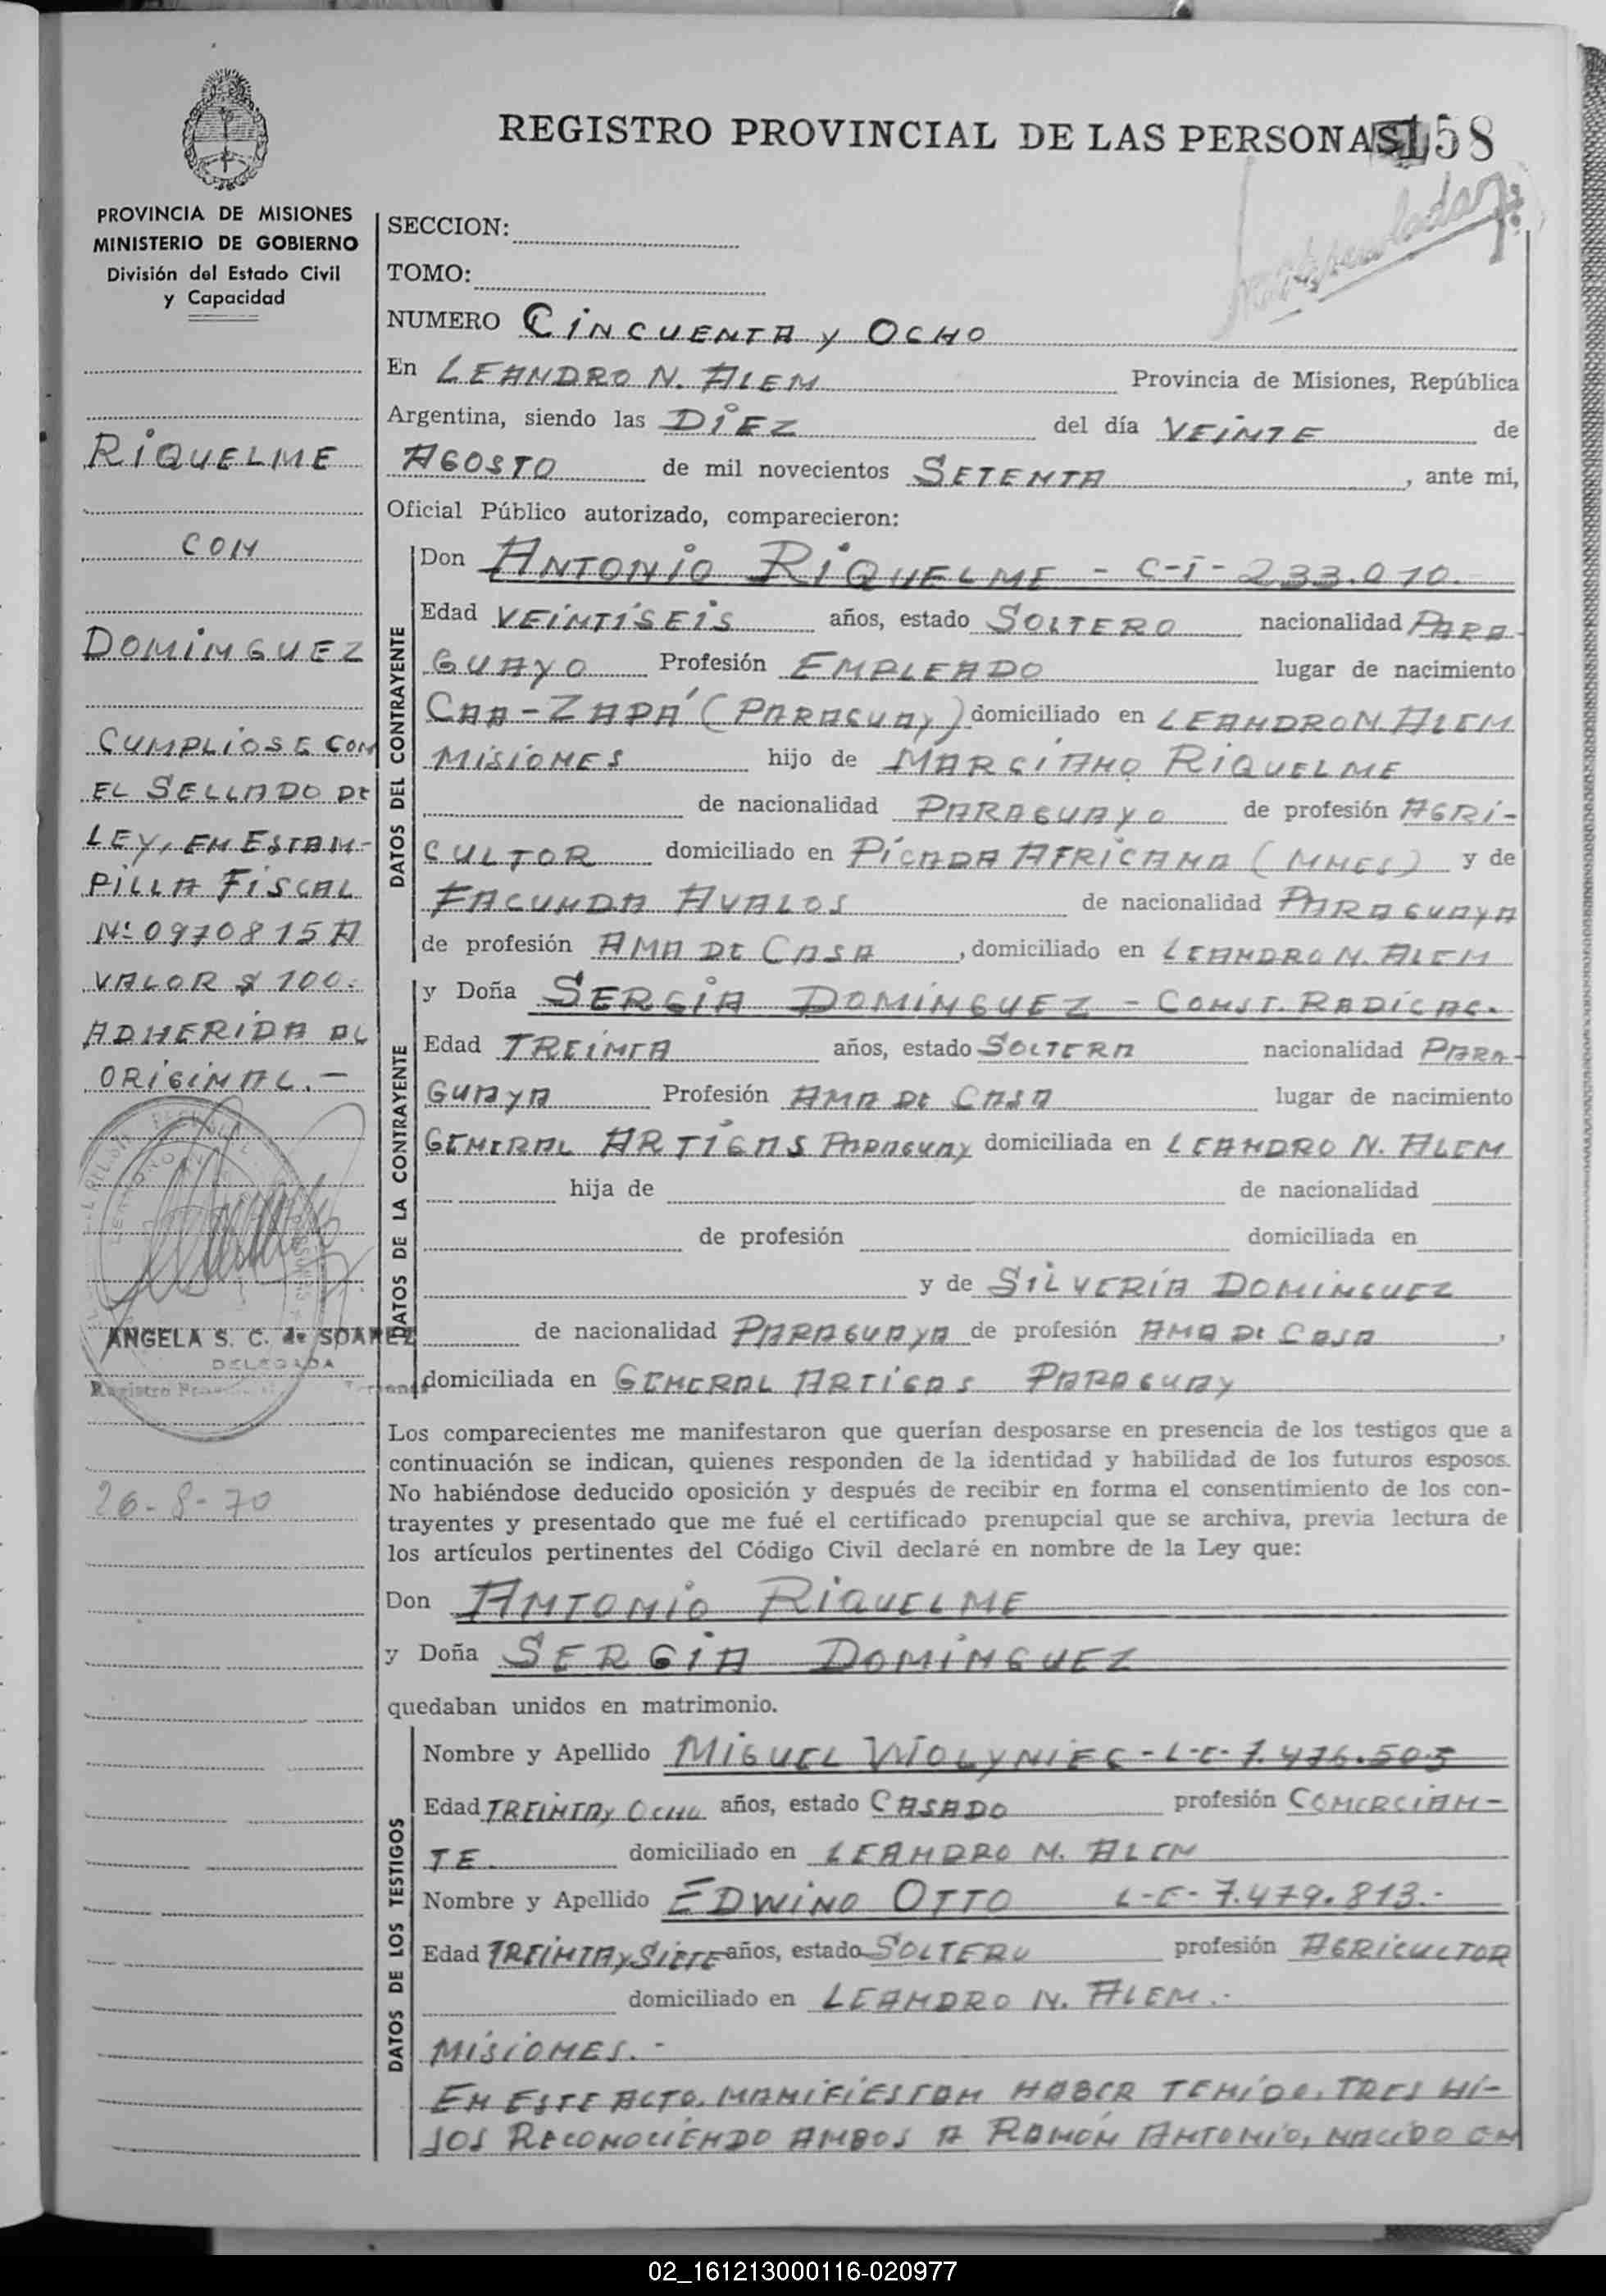 REGISTRO PROVINCIAL DE LAS PERSONAS 158
PROVINCIA DE MISIONES
MINISTERIO DE GOBIERNO
División del Estado Civil
y Capacidad
RIQUELME
CON
DOMINGUEZ
CUMPLIOSE CON
EL SELLADO DE
LEY, EN ESTAM-
PILLA FISCAL
Nº 0970815 A
VALOR $ 100.
ADHERIDA AL
ORIGINAL.-
ANGELA S. C. de SOAREZ
DELEGADA
26-8-70
SECCION:
TOMO:
NUMERO CINCUENTA y OCHO
En LEANDRO N. ALEM Provincia de Misiones, República
Argentina, siendo las DIEZ del día VEINTE de
AGOSTO de mil novecientos SETENTA, ante mi,
Oficial Público autorizado, comparecieron:
DATOS DEL CONTRAYENTE
Don ANTONIO RIQUELME - C-I- 233.010.
Edad VEINTISEIS años, estado SOLTERO nacionalidad PARA-
GUAYO Profesión EMPLEADO lugar de nacimiento
CAA-ZAPÁ (PARAGUAY) domiciliado en LEANDRO N. ALEM
MISIONES hijo de MARCIANO RIQUELME
de nacionalidad PARAGUAYO de profesión AGRI-
CULTOR domiciliado en PICADA AFRICANA (MNES) y de
FACUNDA AVALOS de nacionalidad PARAGUAYA
de profesión AMA DE CASA, domiciliado en LEANDRO N. ALEM
DATOS DE LA CONTRAYENTE
y Doña SERGIA DOMINGUEZ - CONST. RADICAC.
Edad TREINTA años, estado SOLTERA nacionalidad PARA-
GUAYA Profesión AMA DE CASA lugar de nacimiento
GENERAL ARTIGAS PARAGUAY domiciliada en LEANDRO N. ALEM
hija de de nacionalidad
de profesión domiciliada en
y de SILVERIA DOMINGUEZ
de nacionalidad PARAGUAYA de profesión AMA DE CASA,
domiciliada en GENERAL ARTIGAS PARAGUAY
Los comparecientes me manifestaron que querían desposarse en presencia de los testigos que a
continuación se indican, quienes responden de la identidad y habilidad de los futuros esposos.
No habiéndose deducido oposición y después de recibir en forma el consentimiento de los con-
trayentes y presentado que me fué el certificado prenupcial que se archiva, previa lectura de
los artículos pertinentes del Código Civil declaré en nombre de la Ley que:
Don ANTONIO RIQUELME
y Doña SERGIA DOMINGUEZ
quedaban unidos en matrimonio.
DATOS DE LOS TESTIGOS
Nombre y Apellido MIGUEL WOLYNIEC - L-E- 7.476.505
Edad TREINTA y OCHO años, estado CASADO profesión COMERCIAN-
TE. domiciliado en LEANDRO N. ALEM
Nombre y Apellido EDWINO OTTO L-E- 7.479.813.-
Edad TREINTA y SIETE años, estado SOLTERO profesión AGRICULTOR
domiciliado en LEANDRO N. ALEM.-
MISIONES.-
EN ESTE ACTO, MANIFIESTAN HABER TENIDO, TRES HI-
JOS RECONOCIENDO AMBOS A RAMÓN ANTONIO, NACIDO EN
02_161213000116-020977